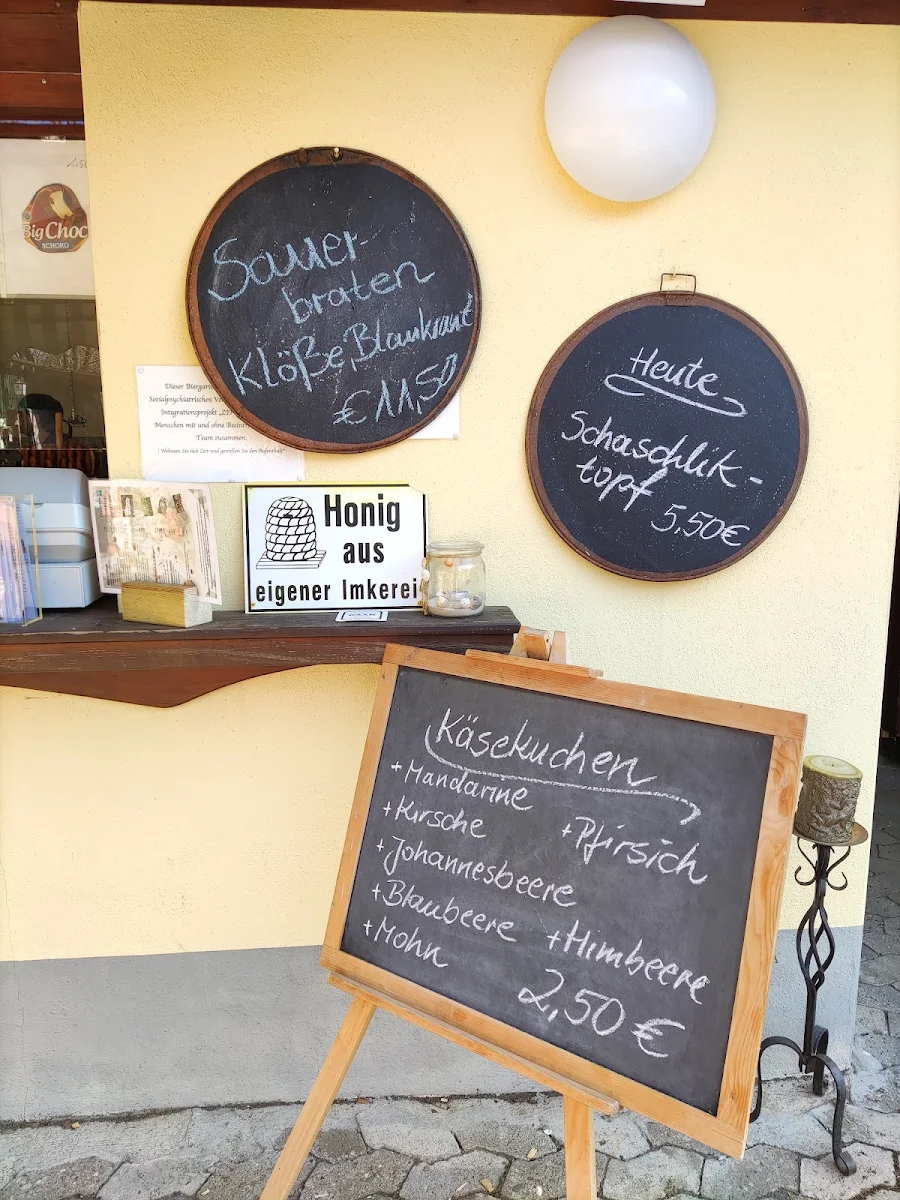 Big Choc
SCHOKO
Sauer-
braten
Klöße, Blaukraut
€ 11,50
Dieser Biergart
Sozialpsychiatrischen Ve
Integrationsprojekt
Menschen mit und ohne
Team zusammen.
Nehmen Sie sich Zeit und genießen Sie den Aufenthalt"
Heute
Schaschlik-
topf
5,50€
Honig
aus
eigener Imkerei
Käsekuchen
+Mandarine
+Kirsche
+Pfirsich
+Johannesbeere
+Blaubeere
+Himbeere
+Mohn
2,50 €